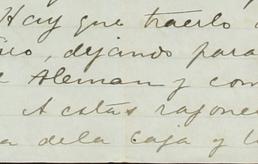 Hay que traerlo a
io, dejando para
e Aleman y con
A estas rajones
a dela caja y l